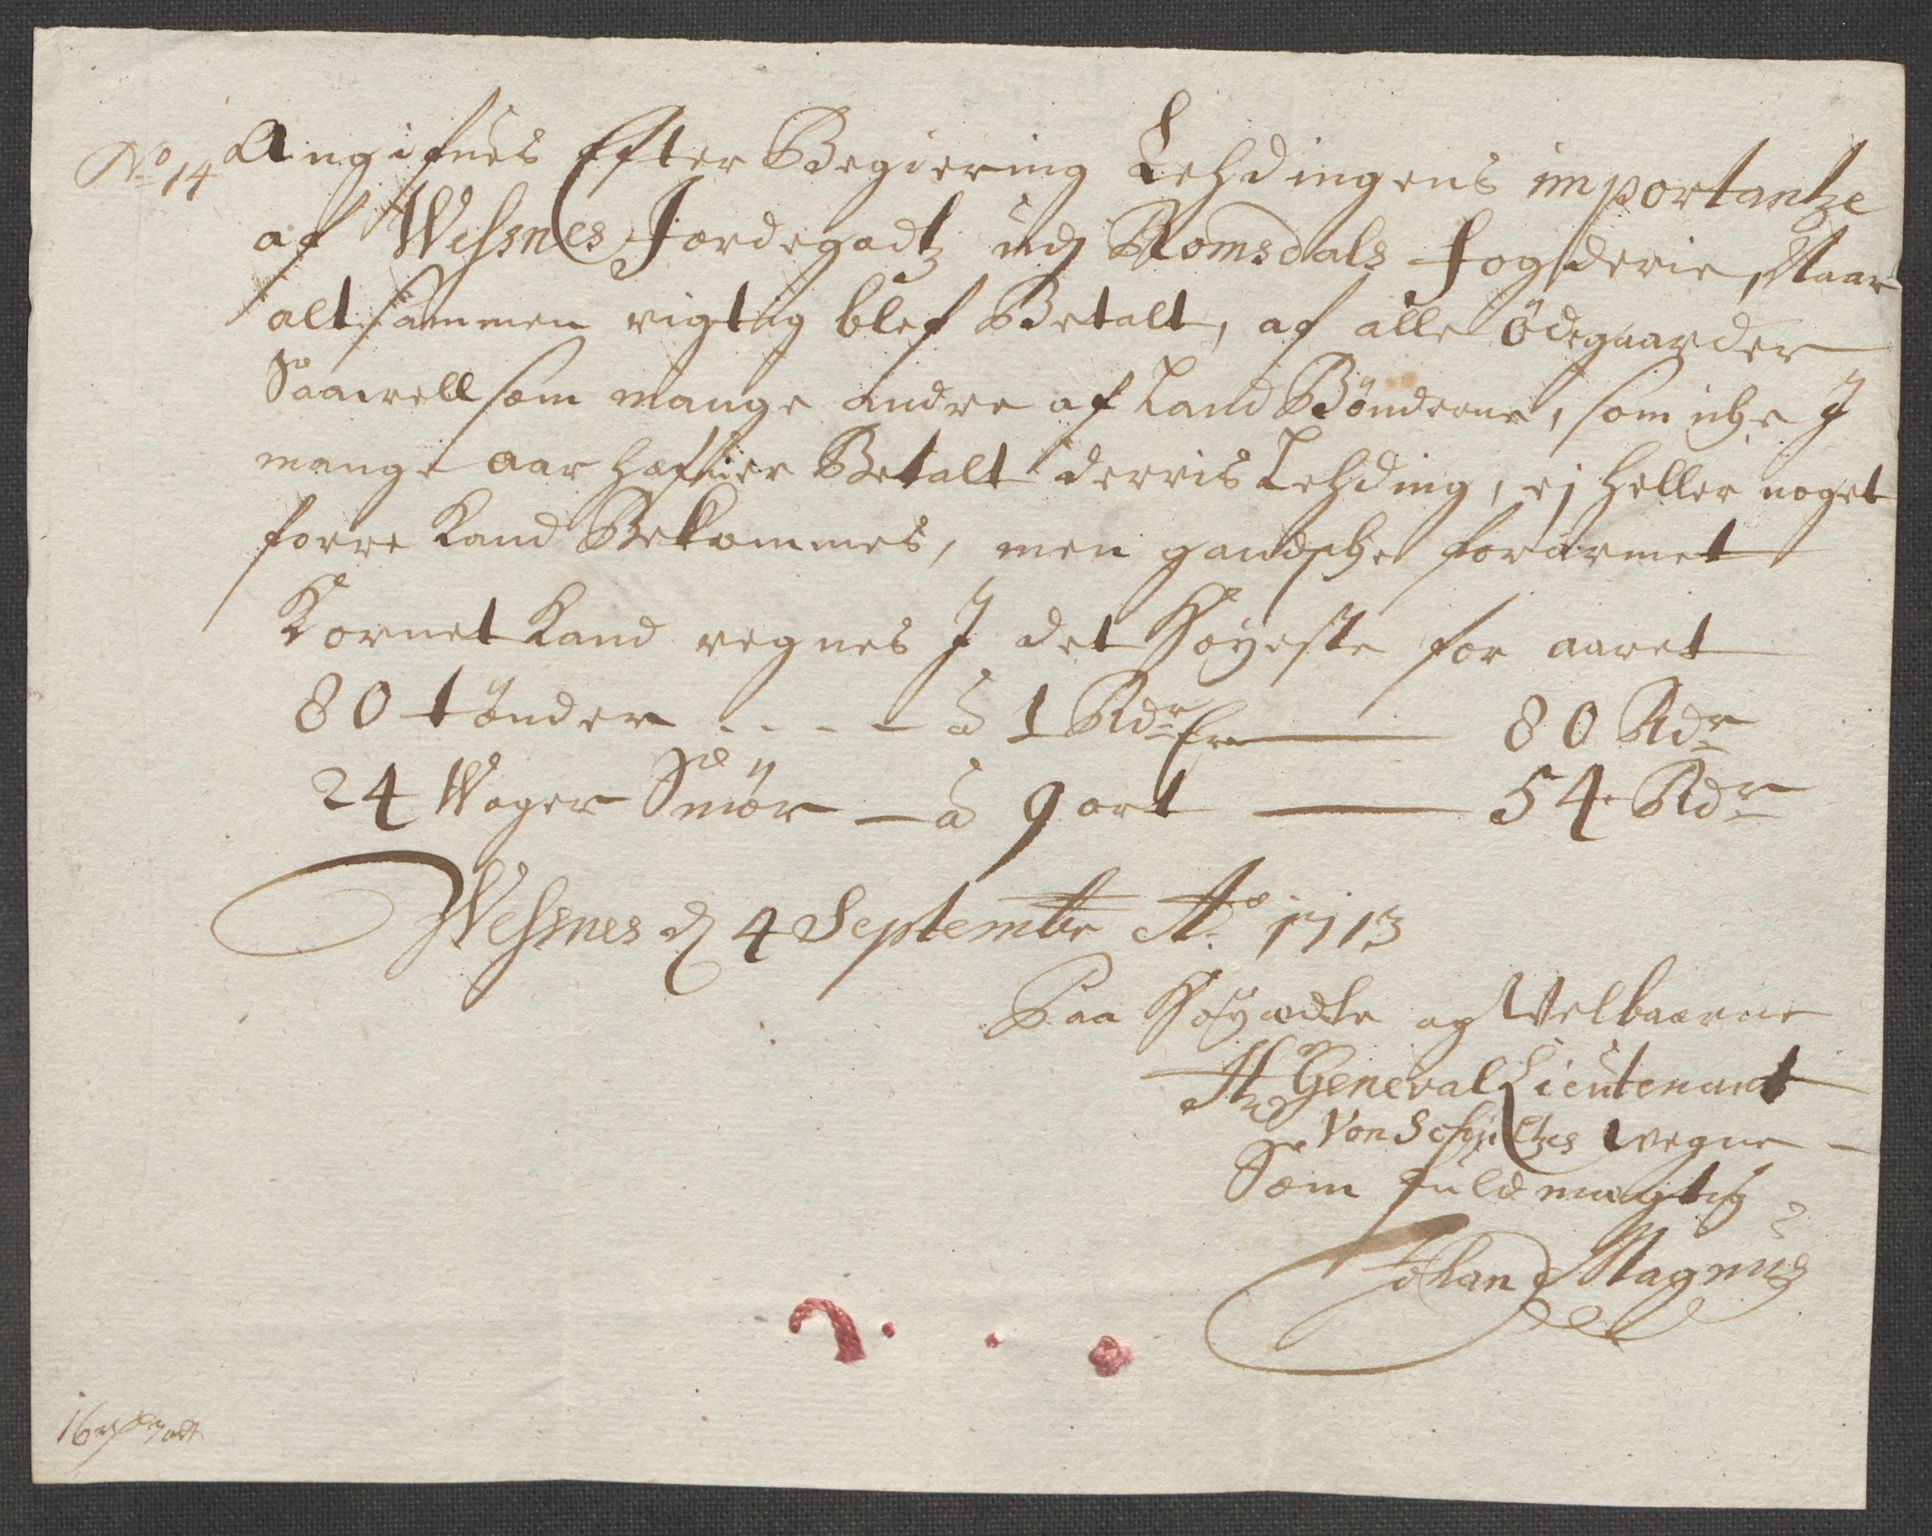 No 14
Angifues Efter Begiering Lehdingens importantze
af Wessnes Jordegodtz udj Romsdals fogderie, Naar
alt sammen rigtig blef Betalt, af alle ödegaarder
Saawell som mange andre af Land Bönderne, som iche J
mange aar hafuer Betalt derris Lehding, ej heller noget
forre Kand Bekommes, men gandsche forarmet
Kornet Kand regnes J det høyeste for aaret
80 tönder - - - - à 1 Rdr Er — 80 Rdr
24 Woger Smör — à 9 ort — 54 Rdr
Wessnes d 4 Septembr Ao 1713
Paa Høyædle og Velbaarne
Hr General Lieutenant
Von Schultzes wegne
Som fuldmægtig
Johan Magnus